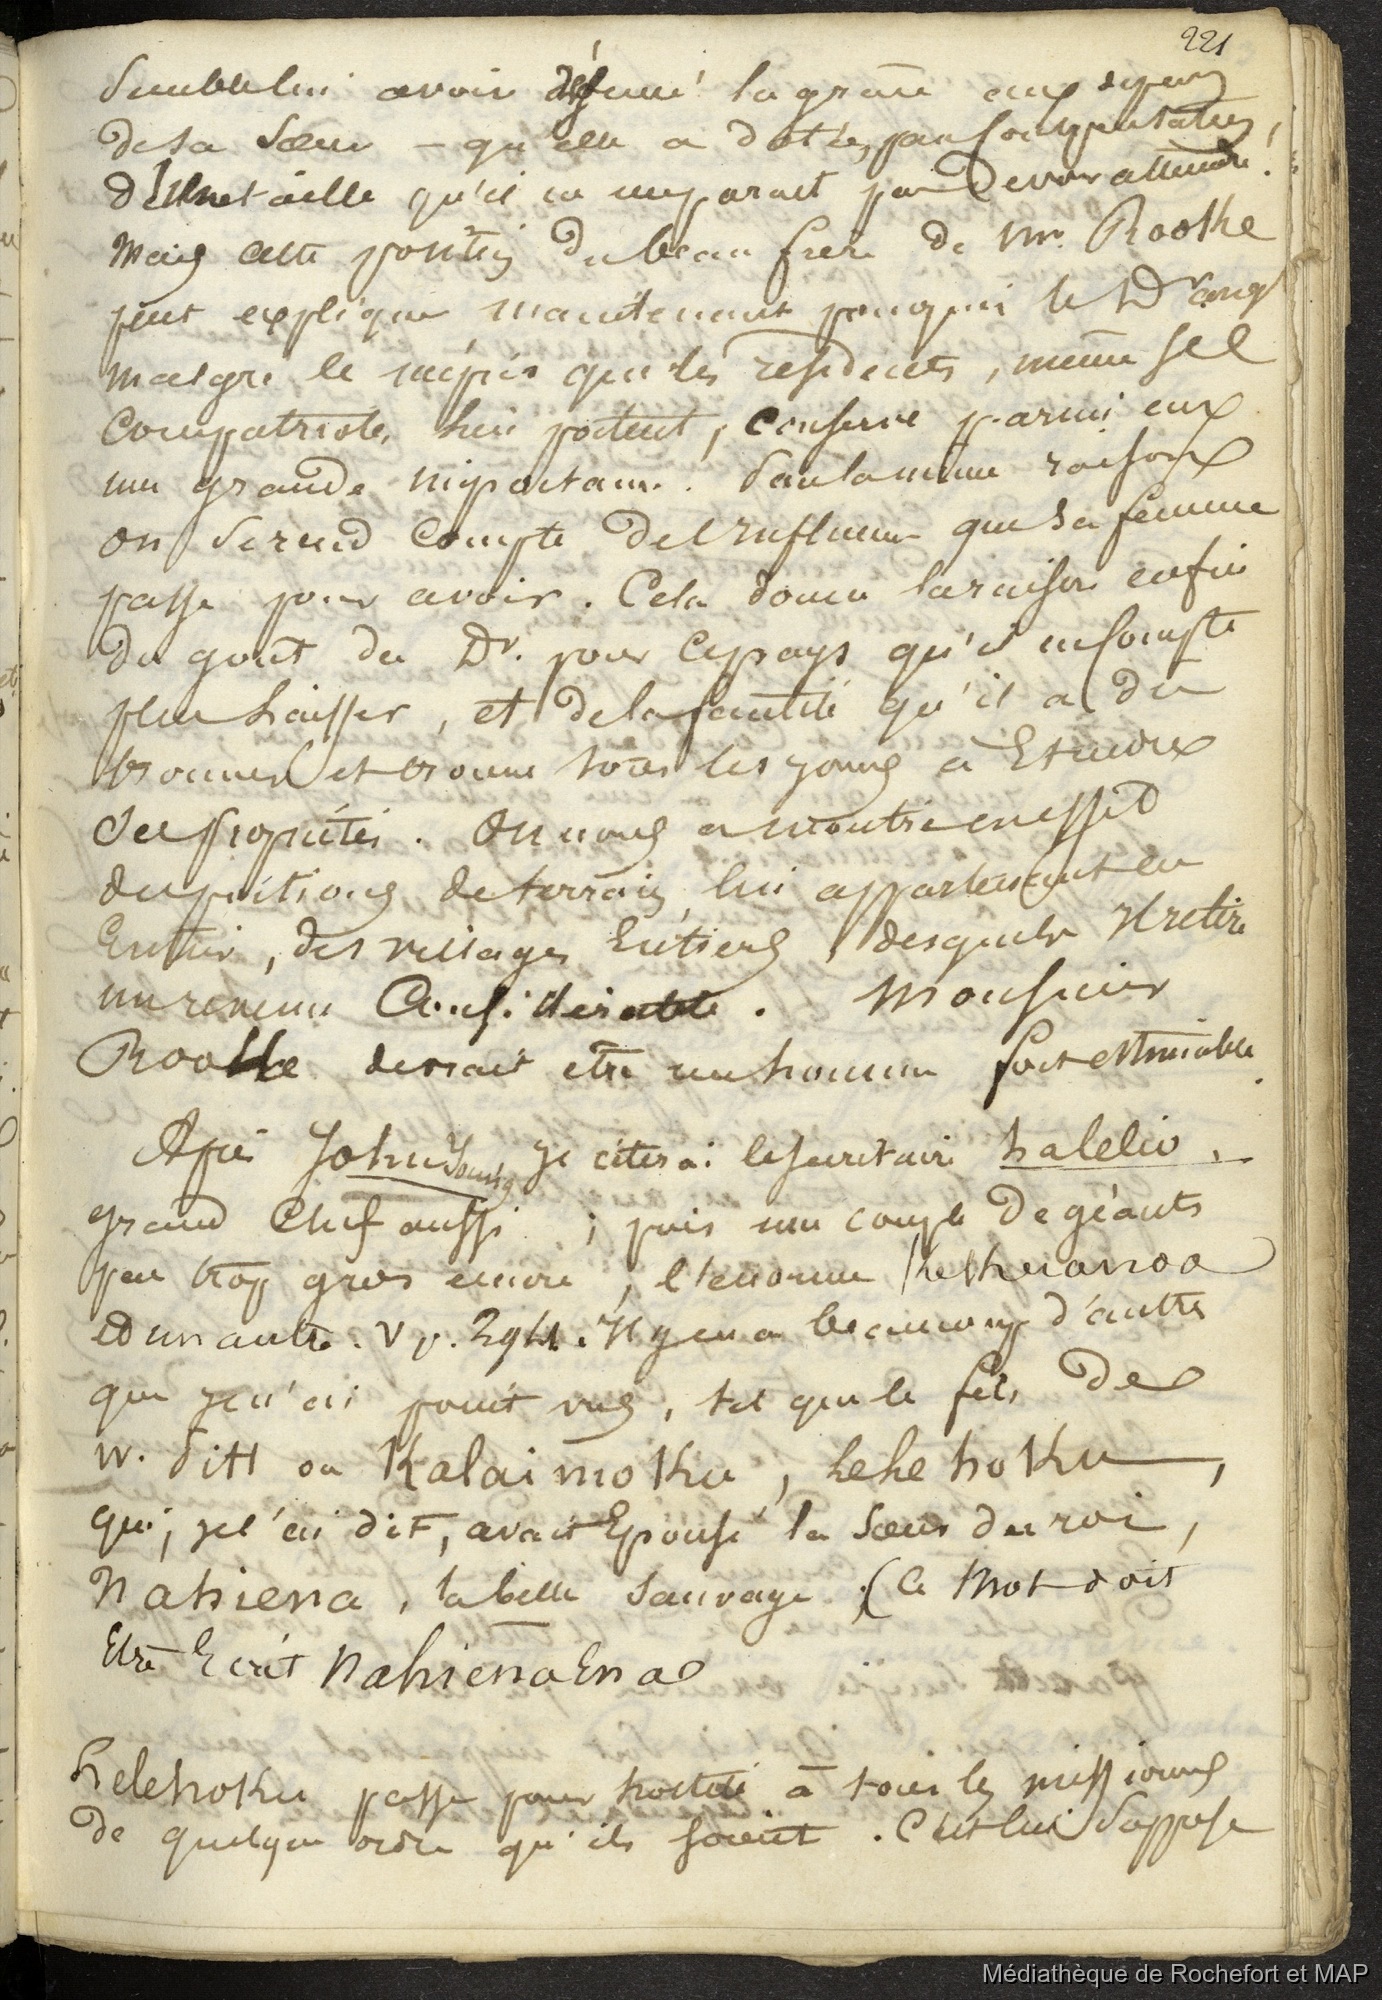 221
semble lui avoir défumé la graine aux dépens
de sa soeur – qu'elle a dotée, par compensation,
d'une taille qu'il ne me parait pas devoir atteindre.
Mais cette position du beau frere de Mr. Rooke
peut expliquer maintenant pourquoi le Dr ang
malgré le mépris que les résidents, même ses
compatriotes, lui portent, conserve parmi eux
une grande importance. Par la même raison
on se rend compte de l'influence que sa femme
passe pour avoir. Cela donne la raison enfin
du gout du Dr. pour ce pays qu'il ne compte
plus laisser, et de la facilité qu'il a du
trouver et trouve tous les jours à Etendre
ses propriétés. On nous a montré en effet
des portions de terrain, lui appartenant en
Entier, des villages Entiers, desquels Il retire
un revenu Considerable. Monsieur
Rooke devrait etre un homme fort estimable.
Après John Young je citerai le secretaire haleliv,
grand Chef aussi ; puis un couple de géants
peu trop gros encore, l'enorme Kekuanoa
et un autre. V p. 294. Il y en a beaucoup d'autres
que je n'ai point vus, tel que le fils de
W. Pitt ou Kalaimoku, helehoku,
qui, je l'ai dit, avait Epousé la soeur du roi,
Nahiena, la belle sauvage. (Ce mot doit
Etre Ecrit NahienaEna
helehoku passe pour hostile à tous les missions
de quelque ordre qu'ils soient. C'est lui s'oppose
Médiathèque de Rochefort et MAP